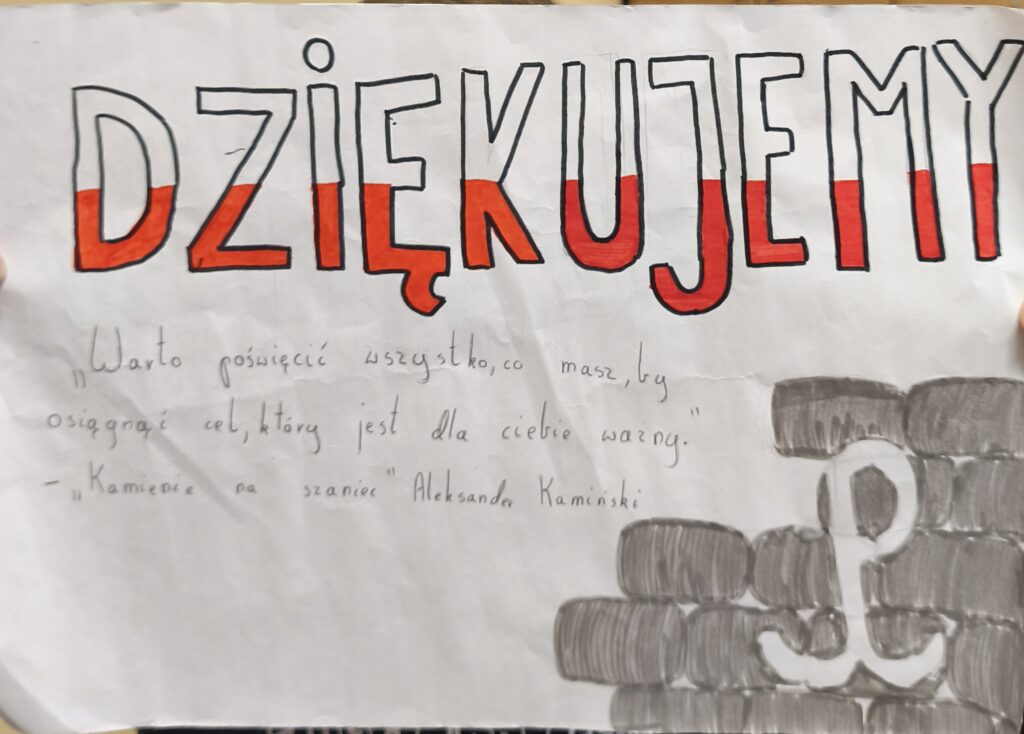 DZIĘKUJEMY
„Warto poświęcić wszystko, co masz, by
osiągnąć cel, który jest dla ciebie ważny."
- „Kamienie na szaniec" Aleksander Kamiński